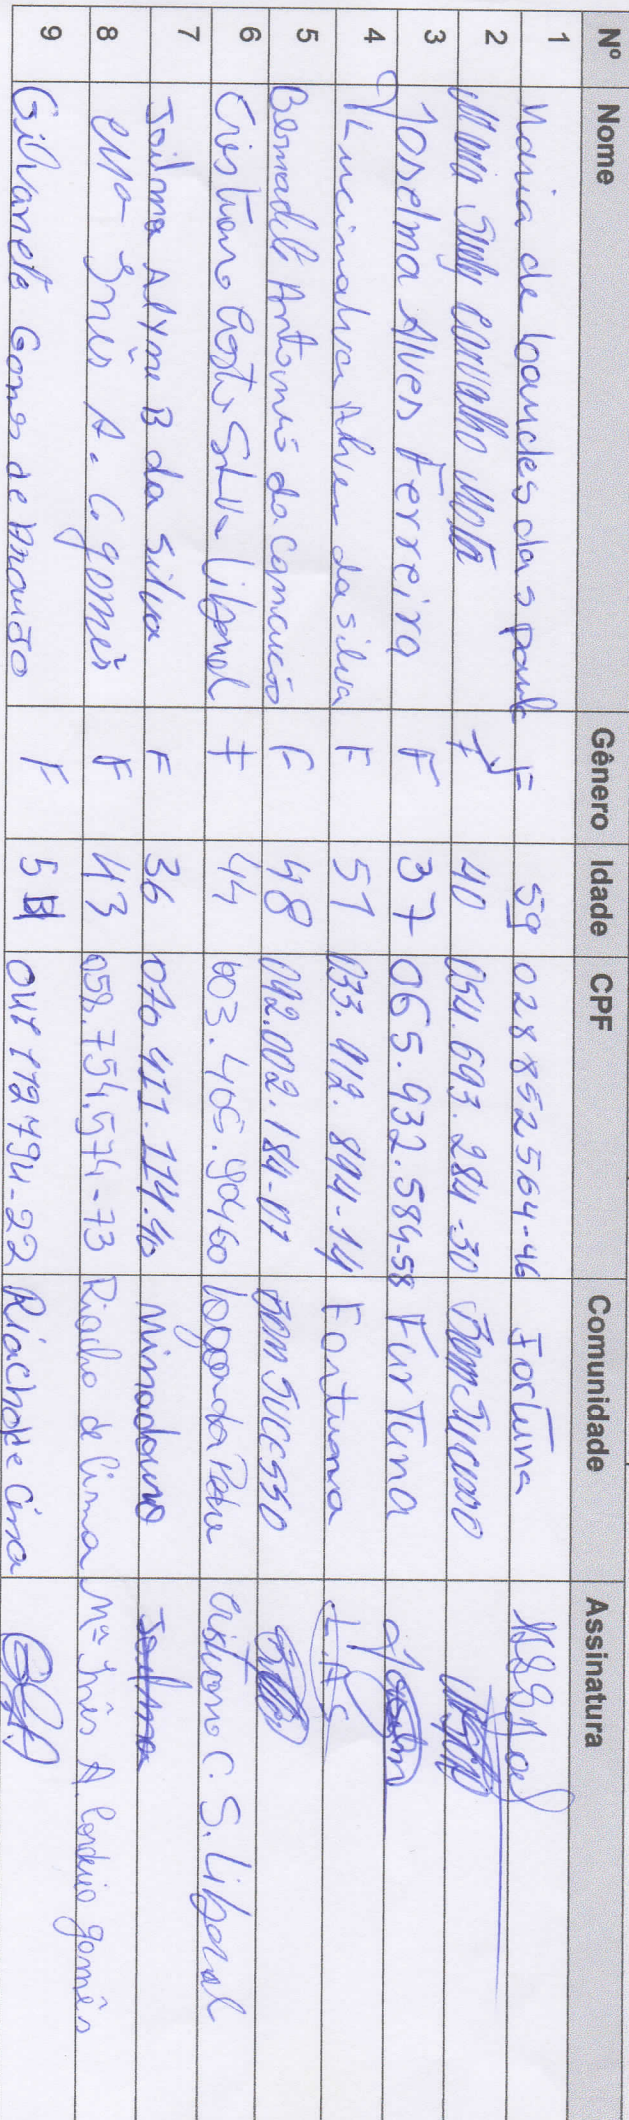 Nº Nome Gênero Idade CPF Comunidade Assinatura
1 Maria de Lourdes das F 59 028852564-46 Fortuna
2 Maria Suely Carvalho Mota F 40 054.693.284-30 Bom Sucesso
3 Joselma Alves Ferreira F 37 065.932.584-58 Furtuna
4 Lucinalva Alves da silva F 51 033.912.844-14 Fortuna L.A.S
5 Bernadete Antonia da Conceicão F 48 042.002.184-07 Bom Sucesso
6 Cristiano Costa Silva Liberal F 44 603.405.90460 Lagoa da Pedra Cristiano C. S. Liberal
7 Joilma Alyne B da Silva F 36 070.411.114.40 Minadouro Joilma
8 Mª Inês A. C. gomês F 43 058.754.574-73 Riacho de Cima Mª Inês A. Cordeiro gomês
9 Gilvanete Gomes de F 5 Riacho de Cima